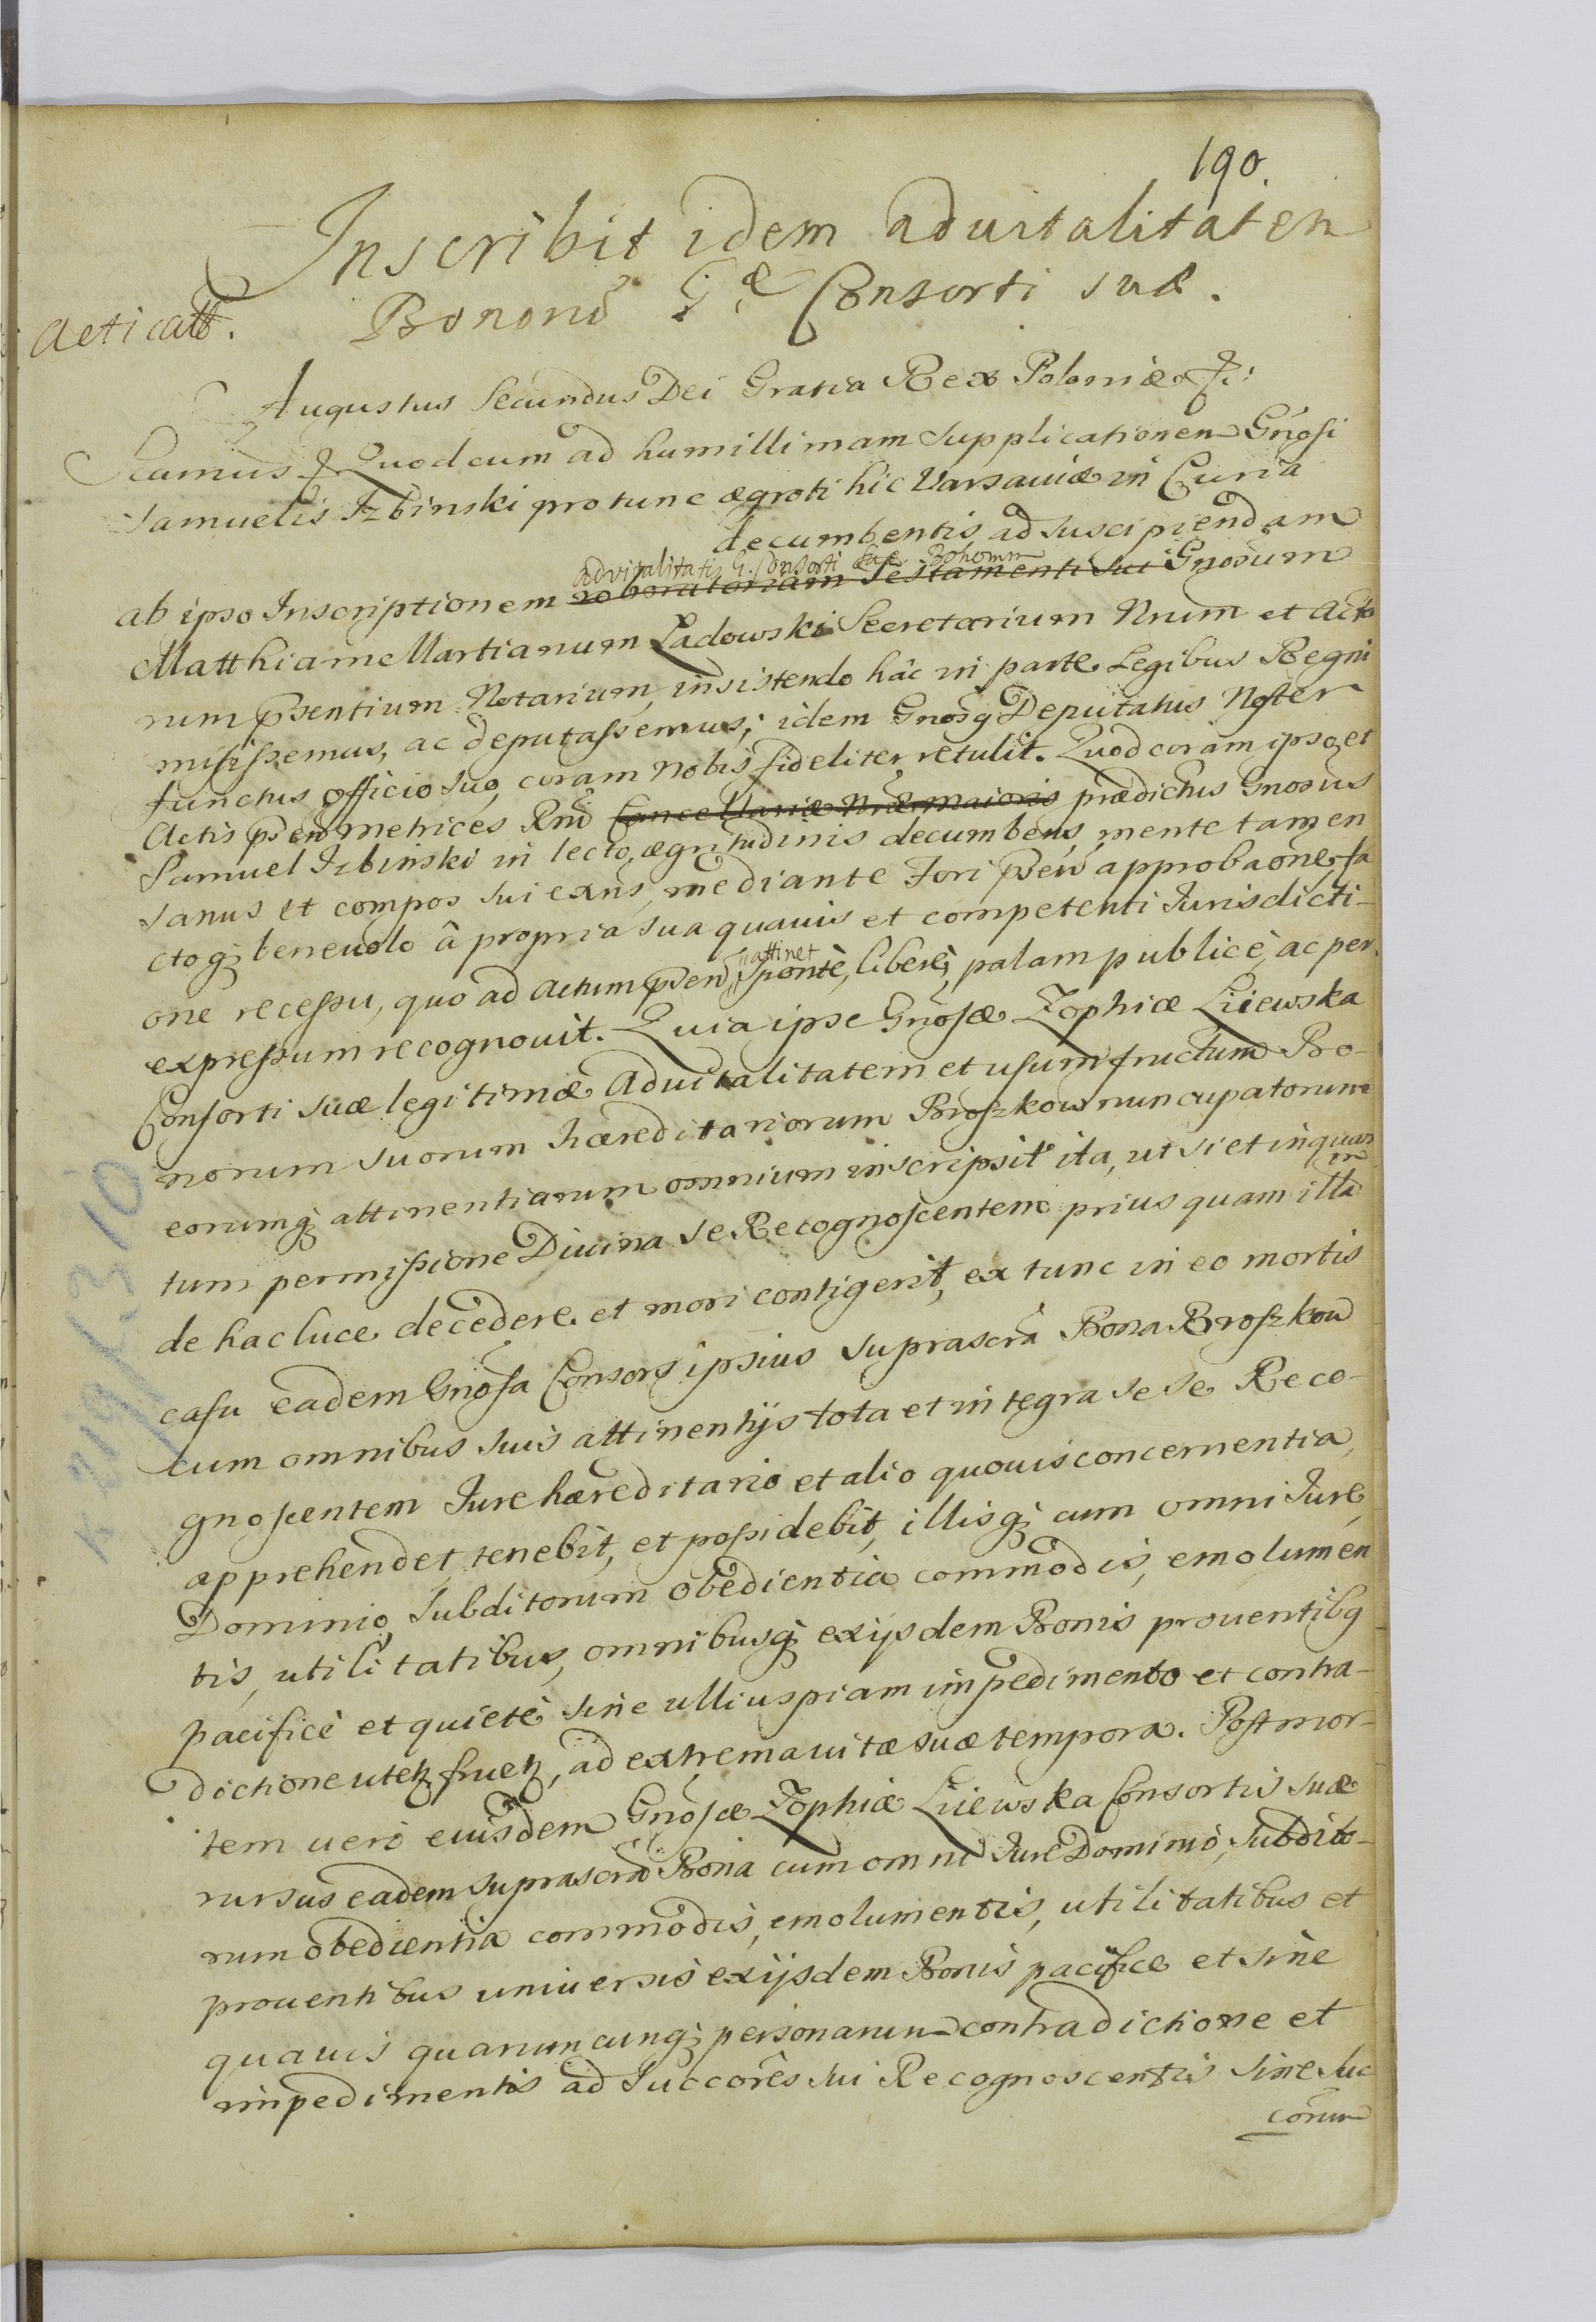 190.
Inscribit idem aduitalitatem
Bonorũ G. æ Consorti suæ.
Acticatt.
Augustus Secundus Dei Gratia Rex Poloniæ &:
Scamus & Quod cum ad humillimam supplicationem Gnõsi
Samuelis Izbinski pro tunc ægroti hic Varsaviæ in Curia
decumbentis, ad suscipiendam
advitalitatis G. Consorti suæ Bonorum
ab ipso Inscriptionem roboratoriam Testamenti sui Gnosum
Matthiam Martianum Ladowski Secretarium Nrum et Acto
rum pśentium Notarium, insistendo hâc in parte Legibus Regni
misissemus, ac deputassemus; idem Gnosq Deputatus Noster
functus officio suo, coram nobis fideliter retulit. Quod coram ipso et
Actis pśen metrices Rñi Cancellariæ Nræ Maioris prædictus Gnosus
Samuel Izbinski in lecto ægritudinis decumbens, mente tamen
sanus et compos sui exñs, mediante Fori pśen approbaone fa
ctoq; beneuolo â propria sua quauis et competenti Iurisdicti-
one recessu, quo ad Actum pśen attinet sponte, liberè, palam publicè, ac per
expressum recognouit. Quia ipse Gnosæ Zophiæ Liiewska
Consorti suæ legitimæ Aduitalitatem et usumfructum Bo-
norum suorum hæreditariorum Broszkow nuncupatorum
eorumq; attinentiarum omnium inscripsit ita, ut si et inquan
tum permissione Diuina se Recognoscentem prius quam illam
de hac luce decedere et mori contigerit, ex tunc in eo mortis
casu eadem Gnosa Consors ipsius suprascrã Bona Broszkow
cum omnibus suis attinentijs tota et integra se se Reco-
gnoscentem Iure hæreditario et alio quouis concernentia,
apprehendet, tenebit, et possidebit, illisq; cum omni Iure,
Dominio, Subditorum obedientia commodis, emolumen
tis, utilitatibus, omnibusq; ex ijsdem Bonis prouentibq
pacificè et quietè sine ulliuspiam impedimento et contra-
dictione utetz fruetz, ad extrema uitæ suæ tempora. Post mor-
tem uerò eiusdem Gnosæ Zophiæ Liiewska Consortis suæ
rursus eadem suprascrã Bona cum omni Iure Dominio, Subdito-
rum obedientia commodis, emolumentis, utilitatibus et
prouentibus uniuersis ex ijsdem Bonis pacifice et sine
quauis quaruncunq; personarum contradictione et
impedimentis ad Succores sui Recognoscentis siue Suc
corum
K 219/23 10